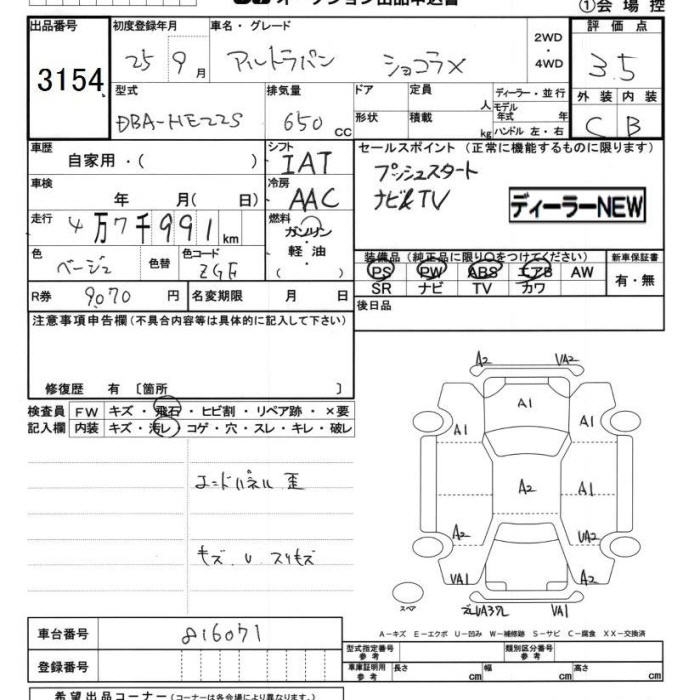 オークション出品申込書
①会場控
出品番号
3154
初度登録年月
25 9月
車名・グレード
アルトラパン ショコラX
2WD
・
4WD
評価点
3.5
型式
DBA-HE22S
排気量
650 cc
ドア
形状
定員 人
積載 kg
ディーラー・並行
モデル年式 年
ハンドル 左・右
外装 内装
C B
車歴
自家用・( )
シフト
IAT
セールスポイント (正常に機能するものに限ります)
プッシュスタート
ナビ&TV
ディーラーNEW
車検
年 月( 日)
冷房
AAC
走行
4万7千991km
燃料
ガソリン
・
軽油
( )
色
ベージュ
色替
色コード
ZGF
装備品(純正品に限り○をつけてください)
PS PW ABS エアB AW
SR ナビ TV カワ
新車保証書
有・無
R券 9070 円
名変期限 月 日
後日品
注意事項申告欄(不具合内容等は具体的に記入して下さい)
修復歴 有 〔箇所 〕
検査員
記入欄
FW キズ・飛石・ヒビ割・リペア跡・×要
内装 キズ・汚レ・コゲ・穴・スレ・キレ・破レ
エンドパネル 歪
キズ U スリキズ
A2 VA2
A1
A1 A1
A2
A2 UA2
VA1 A2
スペア
VA1
A-キズ E-エクボ U-凹み W-補修跡 S-サビ C-腐食 XX-交換済
車台番号
816071
登録番号
型式指定番号
参考
類別区分番号
参考
車庫証明用
参考
長さ cm 幅 cm 高さ cm
希望出品コーナー(コーナーは各会場により異なります。)